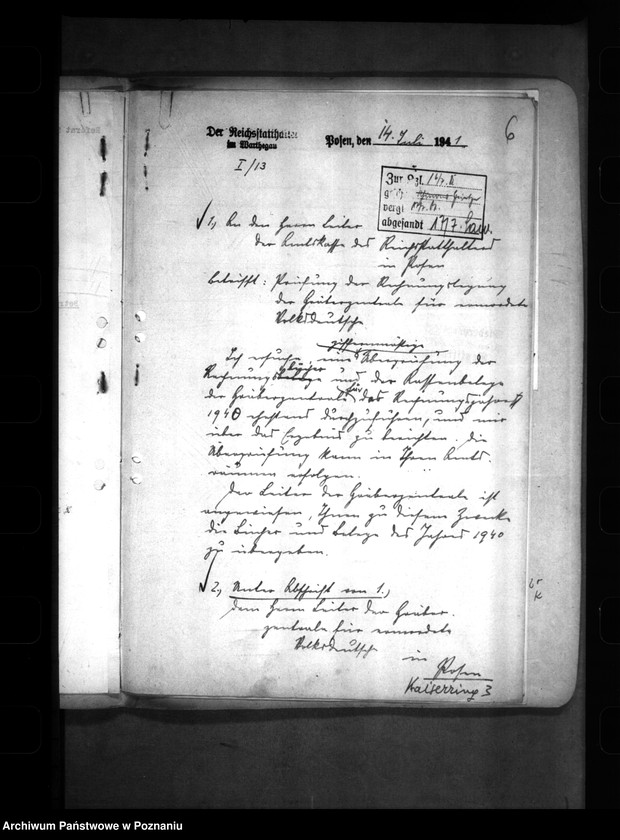 6
Der Reichsstatthalter
im Warthegau
Posen, den 14. Juli 1941
I/13
Zur Kzl.
vergl.
abgesandt 17/7.
1., An den Herrn Leiter
der Amtskasse des Reichsstatthalters
in Posen
Betrifft: Prüfung der Rechnungslegung
der Gräberzentrale für ermordete
Volksdeutsche
ziffernmäßige
Ich ersuche, eine Überprüfung der
Rechnungsbücher und der Kassenbelege
der Gräberzentrale für das Rechnungsjahr
1940 ehestens durchzuführen, und mir
über das Ergebnis zu berichten. Die
Überprüfung kann in Ihren Amts-
räumen erfolgen.
Der Leiter der Gräberzentrale ist
angewiesen, Ihnen zu diesem Zwecke
die Bücher und Belege des Jahres 1940
zu übergeben.
2., Unter Abschrift von 1.,
dem Herrn Leiter der Gräber-
zentrale für ermordete
Volksdeutsche
in Posen
Kaiserring 3
Archiwum Państwowe w Poznaniu